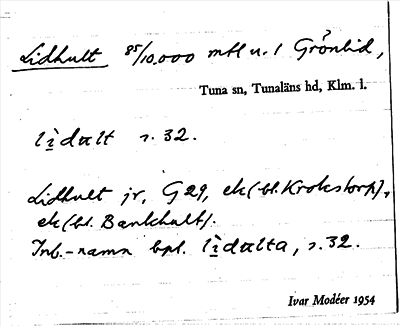 Lidhult 85/10.000 mtl u. 1 Grönlid,
Tuna sn, Tunaläns hd, Klm. l.
lìdult s. 32.
Lidhult jr, G29, ek (bl. Krokstorp),
ek (bl. Bankhult).
Inb.-namn bpl. lìdulta, s. 32.
Ivar Modéer 1954